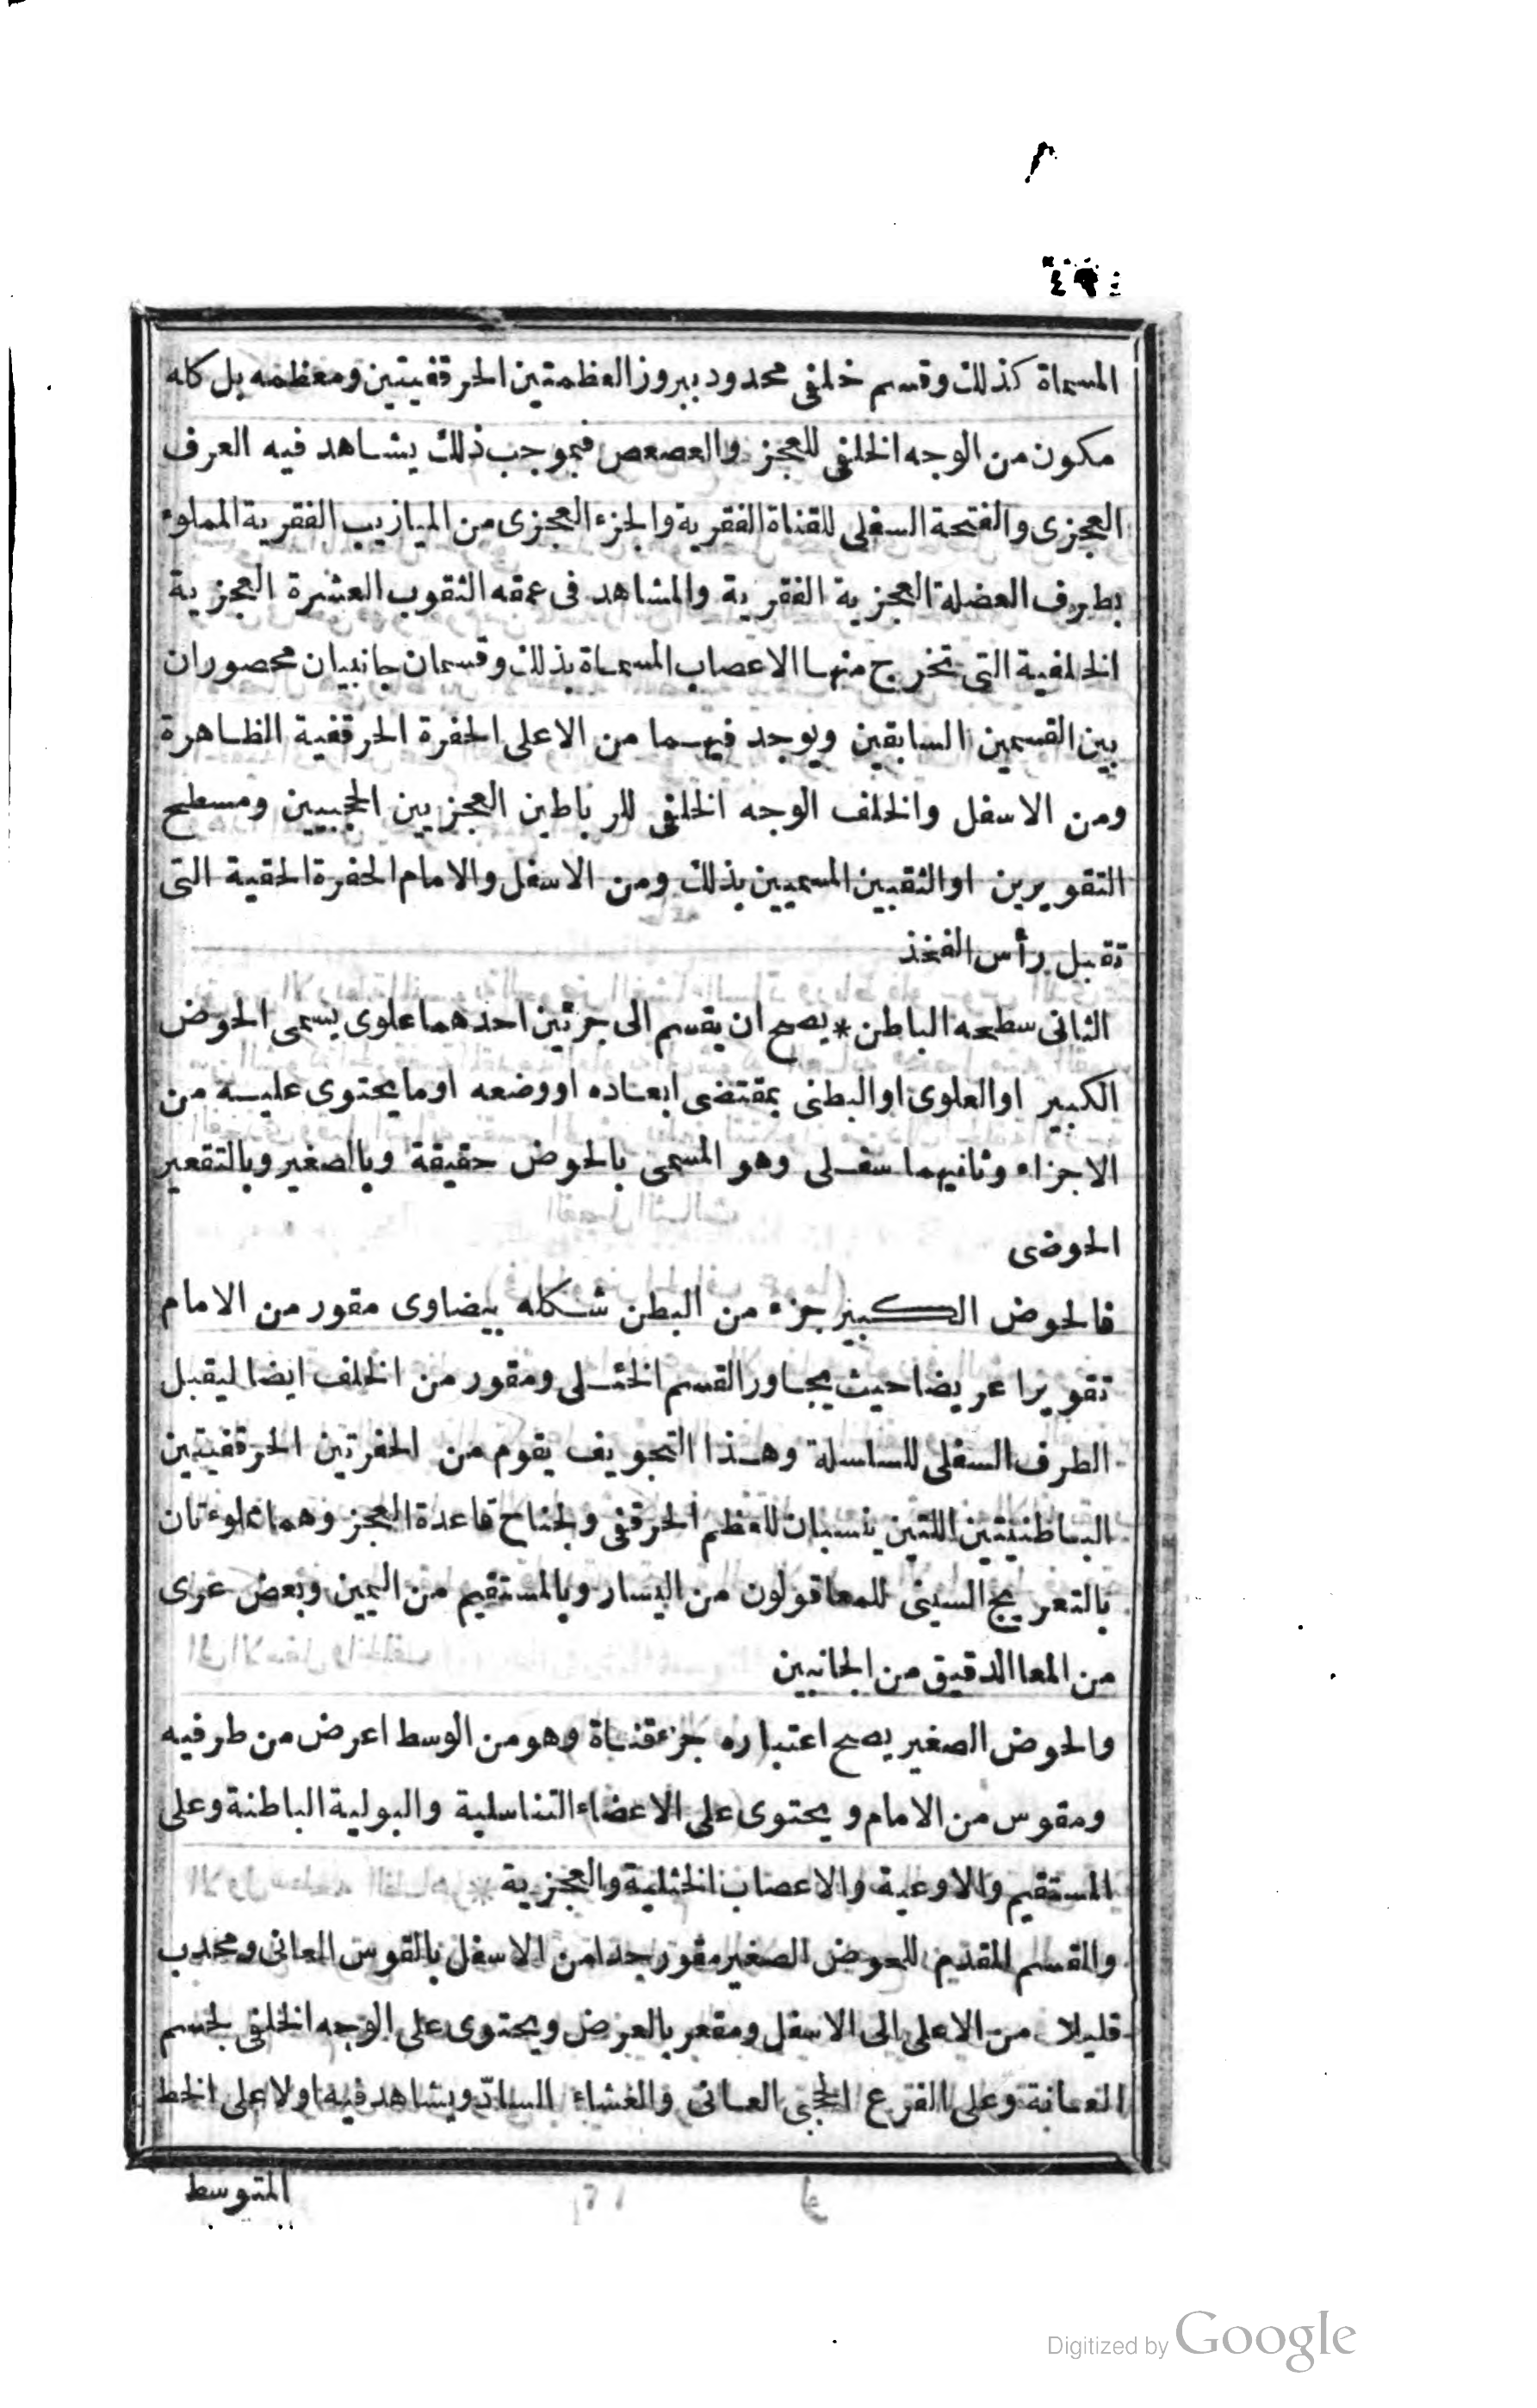 ٤٩
المسماة كذلك وقسم خلفى محدود ببروز العظمتين الحرقفيتين ومعظمه بل كله
مكون من الوجه الخلفى للعجز والعصعص فبموجب ذلك يشاهد فيه العرف
العجزى والفتحة السفلى للقناة الفقرية والجزء العجزى من الميازيب الفقرية المملوء
بطرف العضلة العجزية الفقرية والمشاهد فى عمقه الثقوب العشرة العجزية
الخلفية التى تخرج منها الاعصاب المسماة بذلك وقسمان جانبيان محصوران
بين القسمين السابقين ويوجد فيهما من الاعلى الحفرة الحرقفية الظاهرة
ومن الاسفل والخلف الوجه الخلفى للرباطين العجزيين الحجبيين ومسطح
التقويرين او الثقبين المسميين بذلك ومن الاسفل والامام الحفرة الحقية التى
تقبل رأس الفخذ
الثانى سطحه الباطن * يصح ان يقسم الى جزئين احدهما علوى يسمى الحوض
الكبير او العلوى او البطنى بمقتضى ابعاده او وضعه او ما يحتوى عليه من
الاجزاء وثانيهما سفلى وهو المسمى بالحوض حقيقة وبالصغير وبالتقعير
الحوضى
فالحوض الكبير جزء من البطن شكله بيضاوى مقور من الامام
تقويرا عريضا حيث يجاور القسم الخثلى ومقور من الخلف ايضا ليقبل
الطرف السفلى للسلسلة وهذا التجويف يقوم من الحفرتين الحرقفيتين
الباطنيتين اللتين ينسبان للعظم الحرقفى ولجناح قاعدة العجز وهما مملوءتان
بالتعريج السينى للمعا قولون من اليسار وبالمستقيم من اليمين وبعض عرى
من المعا الدقيق من الجانبين
والحوض الصغير يصح اعتباره جزء قناة وهو من الوسط اعرض من طرفيه
ومقوس من الامام ويحتوى على الاعضاء التناسلية والبولية الباطنة وعلى
المستقيم والاوعية والاعصاب الخثلية والعجزية
والقسم المقدم للحوض الصغير مقور جدا من الاسفل بالقوس العانى ومحدب
قليلا من الاعلى الى الاسفل ومقعر بالعرض ويحتوى على الوجه الخلفى لجسم
العانة وعلى الفرع الحجبى العانى والغشاء السادّ ويشاهد فيه اولا على الخط
المتوسط
Digitized by Google